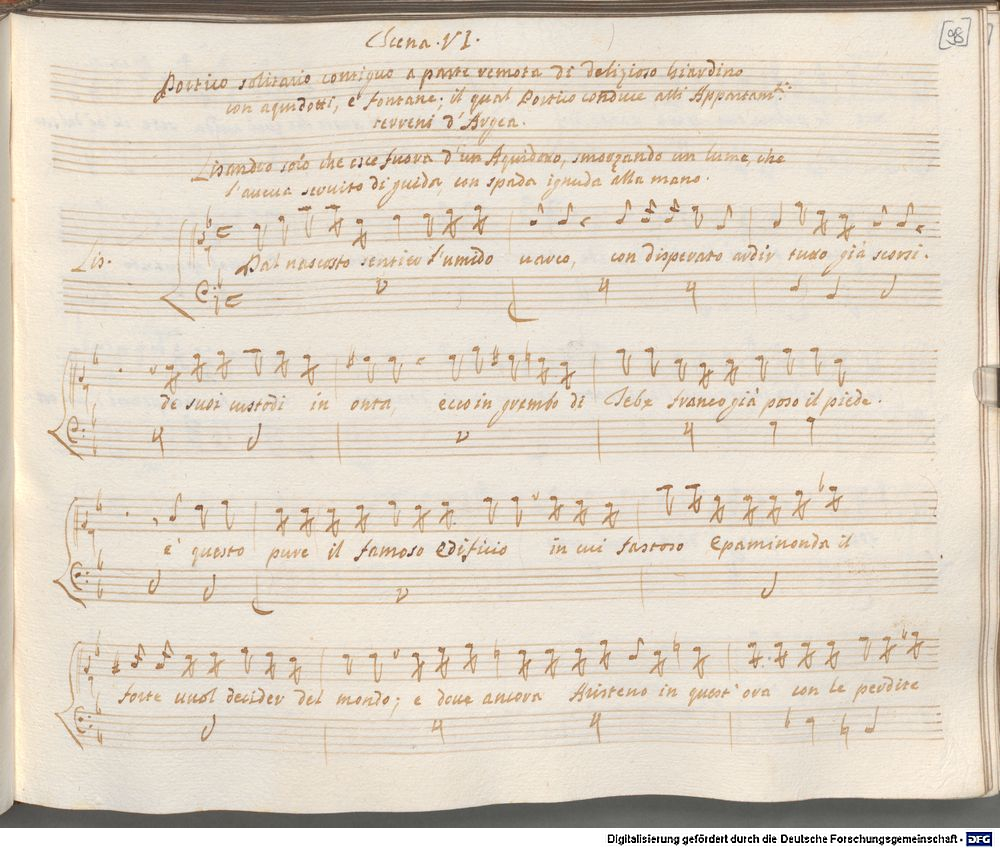 Scena. VI.
[98]
Portico solitario contiguo a parte remota di delizioso Giardino
con aquidotti, e' fontane; il qual Portico conduce alli Appartam.ti
terreni d'Argea.
Lisandro solo che esce fuora d'un Aquidotto, smorzando un lume, che
l'aueua seruito di guida, con spada ignuda alla mano.
Lis.
Dal nascosto sentier l'umido uarco, con disperato ardir tutto già scorsi.
de suoi custodi in onta, ecco in grembo di Tebe franco già poso il piede.
è questo pure il famoso edificio in cui fastoso Epaminonda il
forte uuol decider del mondo; e doue ancora Aristeno in quest'ora con le perdite
Digitalisierung gefördert durch die Deutsche Forschungsgemeinschaft - DFG